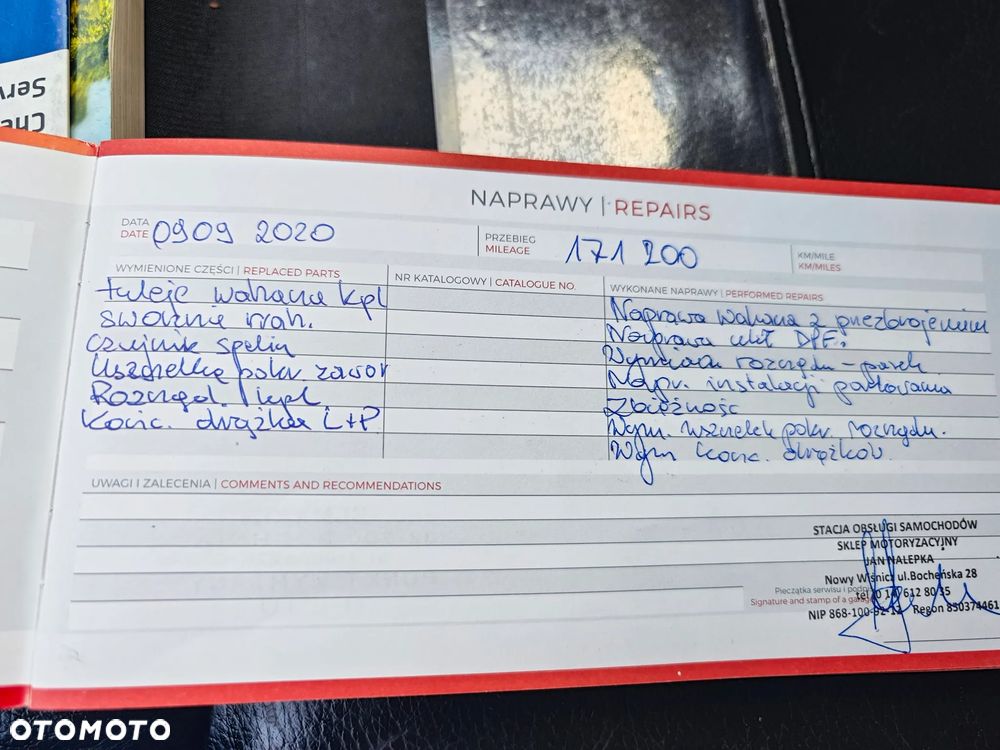 Serv
Che
NAPRAWY | REPAIRS
DATA
DATE 0909 2020
PRZEBIEG
MILEAGE 171 200
KM/MILE
KM/MILES
WYMIENIONE CZĘŚCI | REPLACED PARTS
NR KATALOGOWY | CATALOGUE NO.
WYKONANE NAPRAWY | PERFORMED REPAIRS
tuleje wahacza kpl
sworznie wah.
czujnik spalin
Uszczelkę pokr. zawor
Rozrząd. kpl.
Końc. drążka L+P
Naprawa wahacza z przezbrojeniem
Naprawa ukł DPF.
Wymiana rozrządu - pasek
Napr. instalacji parkowania
Zbieżność
Wym. uszczelek pokr. rozrządu.
Wym końc. drążków
UWAGI I ZALECENIA | COMMENTS AND RECOMMENDATIONS
STACJA OBSŁUGI SAMOCHODÓW
SKLEP MOTORYZACYJNY
JAN NALEPKA
Nowy Wiśnicz ul.Bocheńska 28
Pieczątka serwisu i podpis
tel 0 14 612 80 35
Signature and stamp of a garage
NIP 868-100- Regon 850374461
OTOMOTO